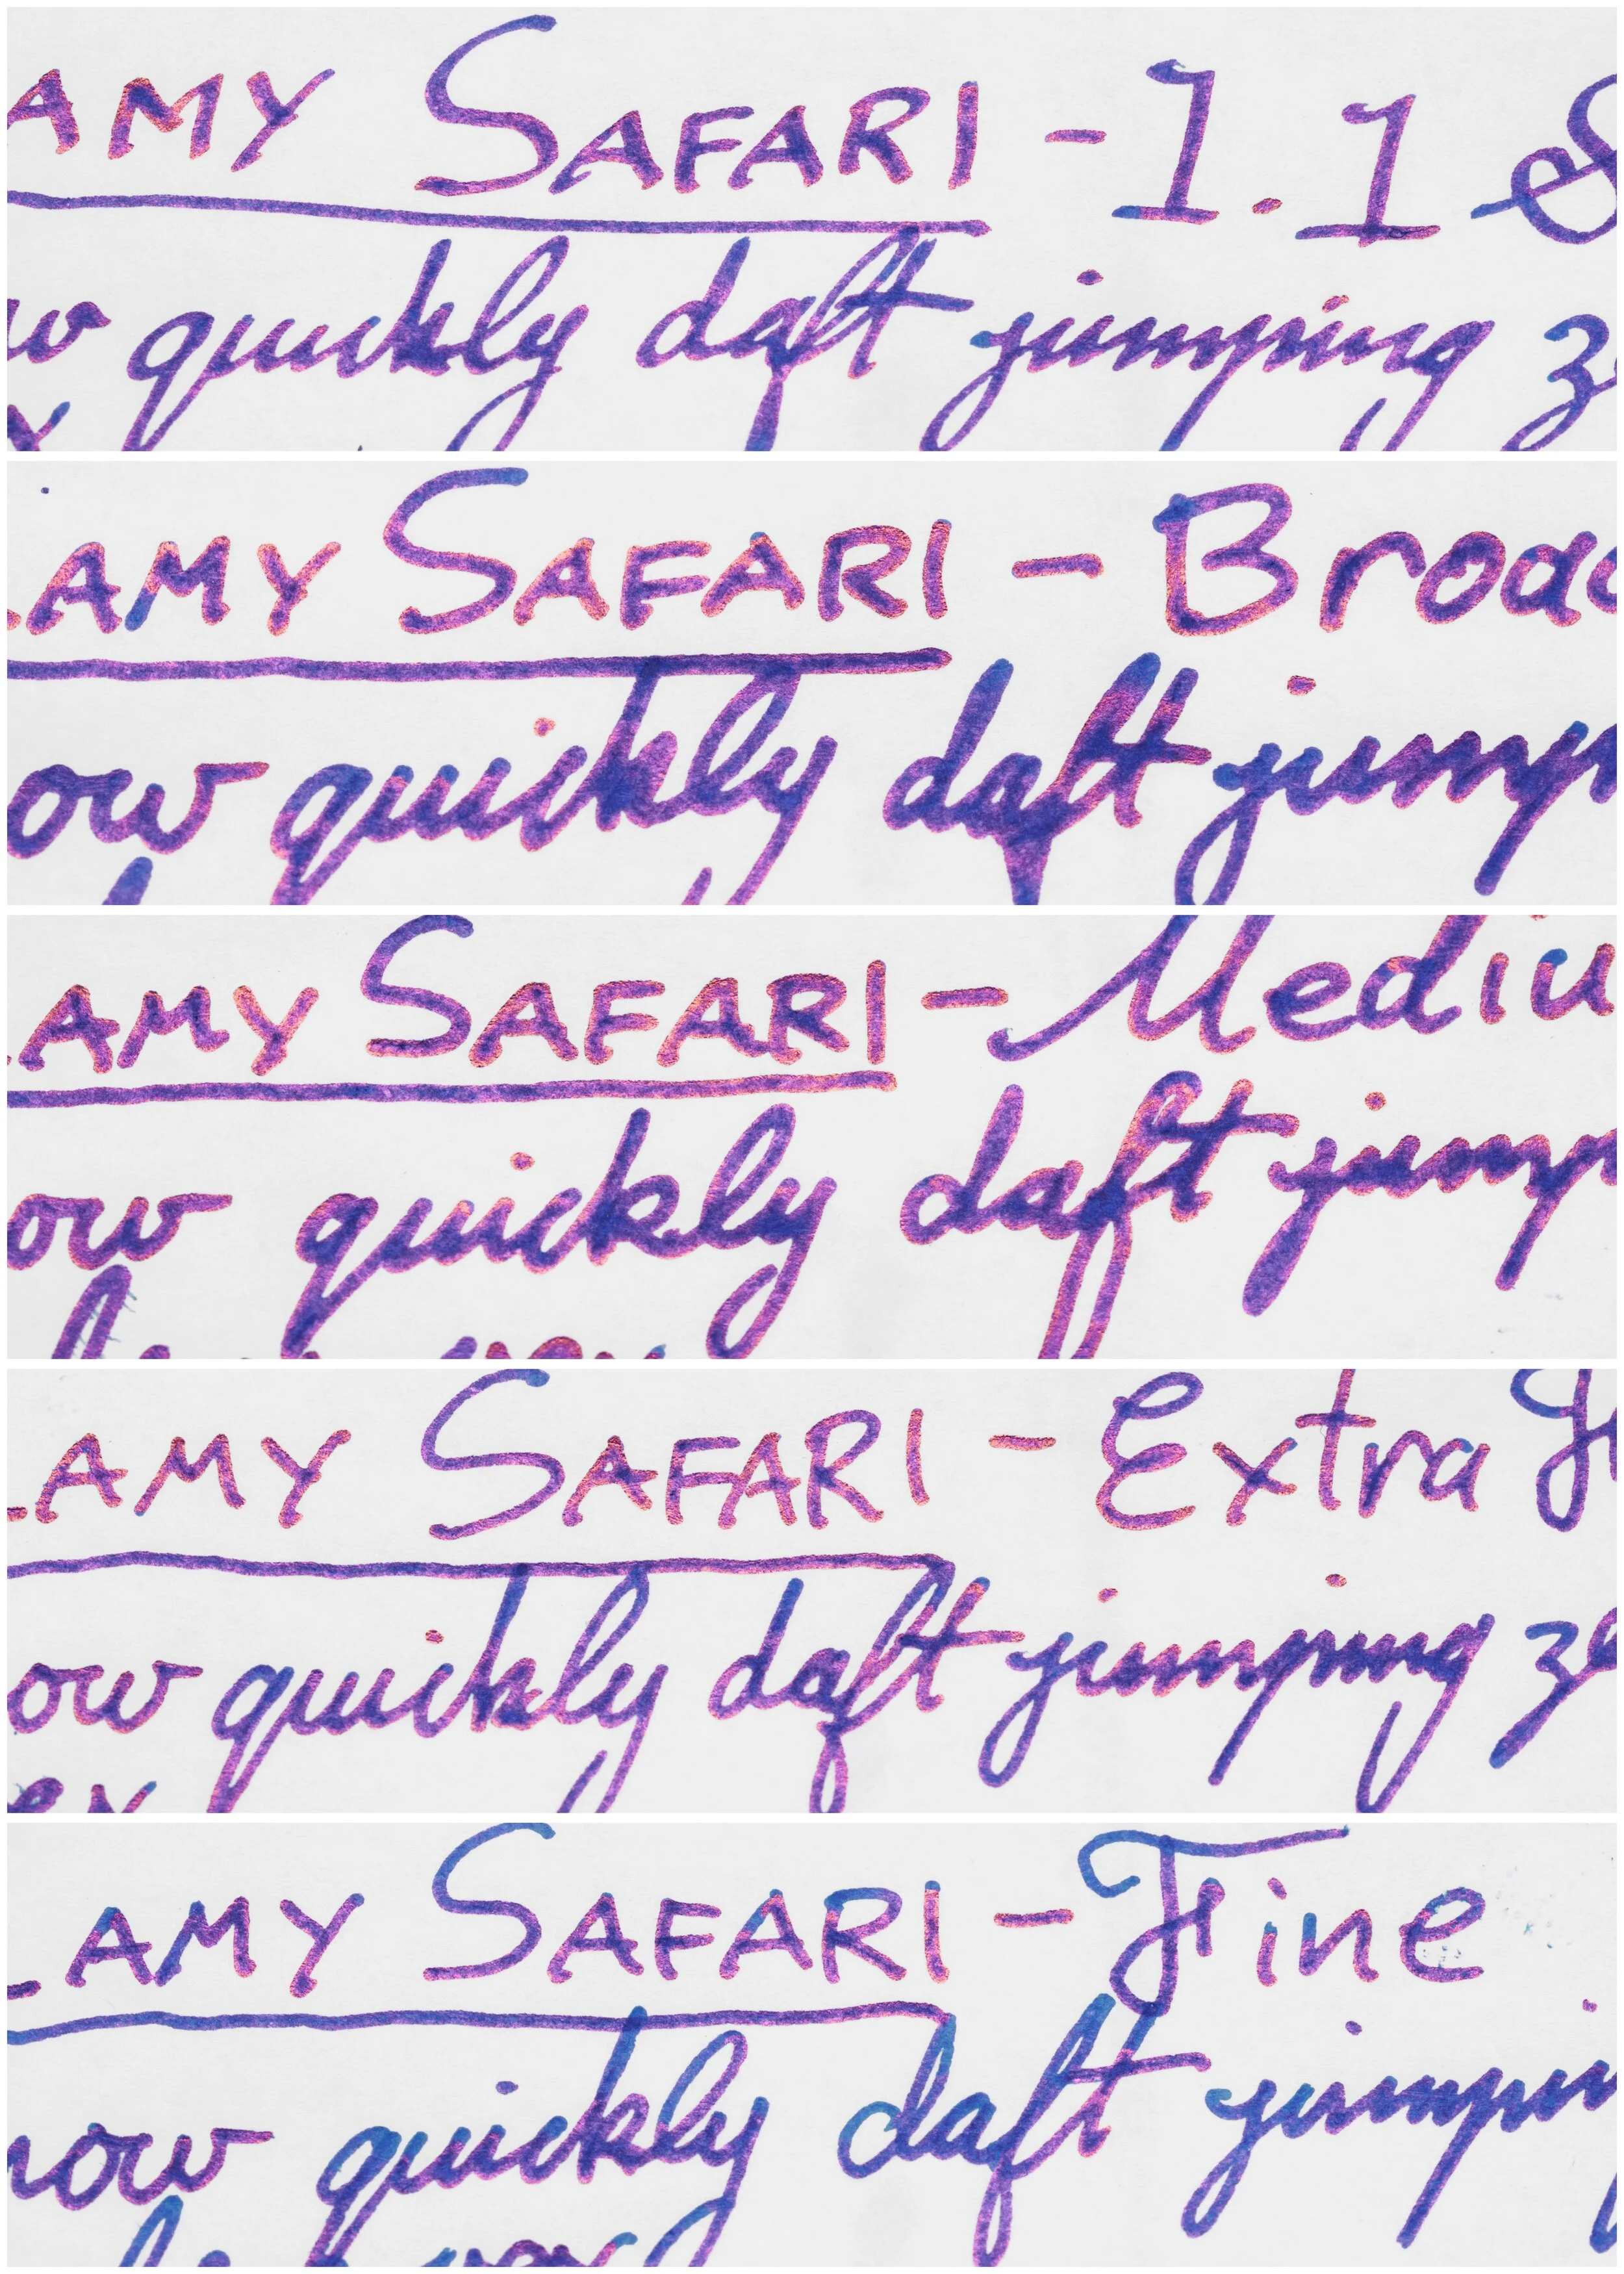 AMY SAFARI - 1.1 S
w quickly daft jumping z
x
LAMY SAFARI - Broad
ow quickly daft jump
LAMY SAFARI - Mediu
ow quickly daft jump
LAMY SAFARI - Extra F
ow quickly daft jumping ze
ex
LAMY SAFARI - Fine
how quickly daft jumpin